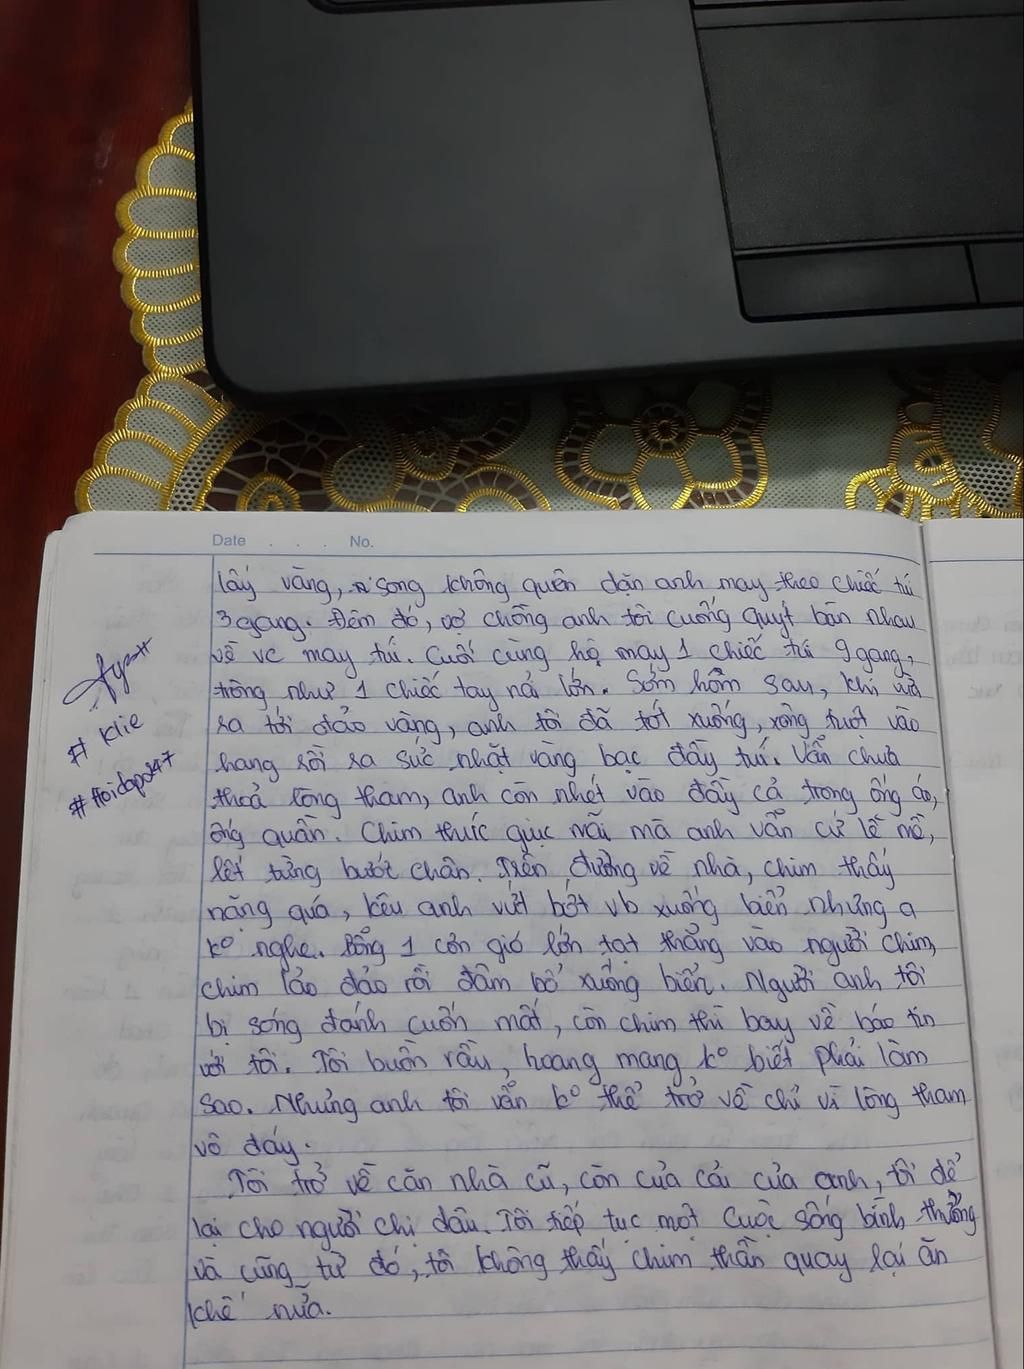 Date . . . No.
lấy vàng, song không quên dặn anh may theo chiếc túi
3 gang. Đêm đó, vợ chồng anh tôi cuống quýt bàn nhau
về vc may túi. Cuối cùng họ may 1 chiếc túi 9 gang,
trông như 1 chiếc tay nải lớn. Sớm hôm sau, khi vừa
ra tới đảo vàng, anh tôi đã tót xuống, xông tuọt vào
hang rồi ra sức nhặt vàng bạc đầy túi. Vẫn chưa
thoả lòng tham, anh còn nhét vào đầy cả trong ống áo,
ống quần. Chim thúc giục mãi mà anh vẫn cứ lề mề,
lết từng bướt chân. Trên đường về nhà, chim thấy
nặng quá, kêu anh vứt bớt vb xuống biển nhưng a
kº nghe. Bỗng 1 cơn gió lớn tạt thẳng vào người chim,
chim lảo đảo rồi đâm bổ xuống biển. Người anh tôi
bị sóng đánh cuốn mất, còn chim thì bay về báo tin
với tôi. Tôi buồn rầu, hoang mang kº biết phải làm
sao. Nhưng anh tôi vẫn kº thể trở về chỉ vì lòng tham
vô đáy.
Tôi trở về căn nhà cũ, còn của cải của anh, tôi để
lại cho người chị dâu. Tôi tiếp tục một cuộc sống bình thường
và cũng từ đó, tôi không thấy chim thần quay lại ăn
khế nữa.
# Klie
# Hoidap247